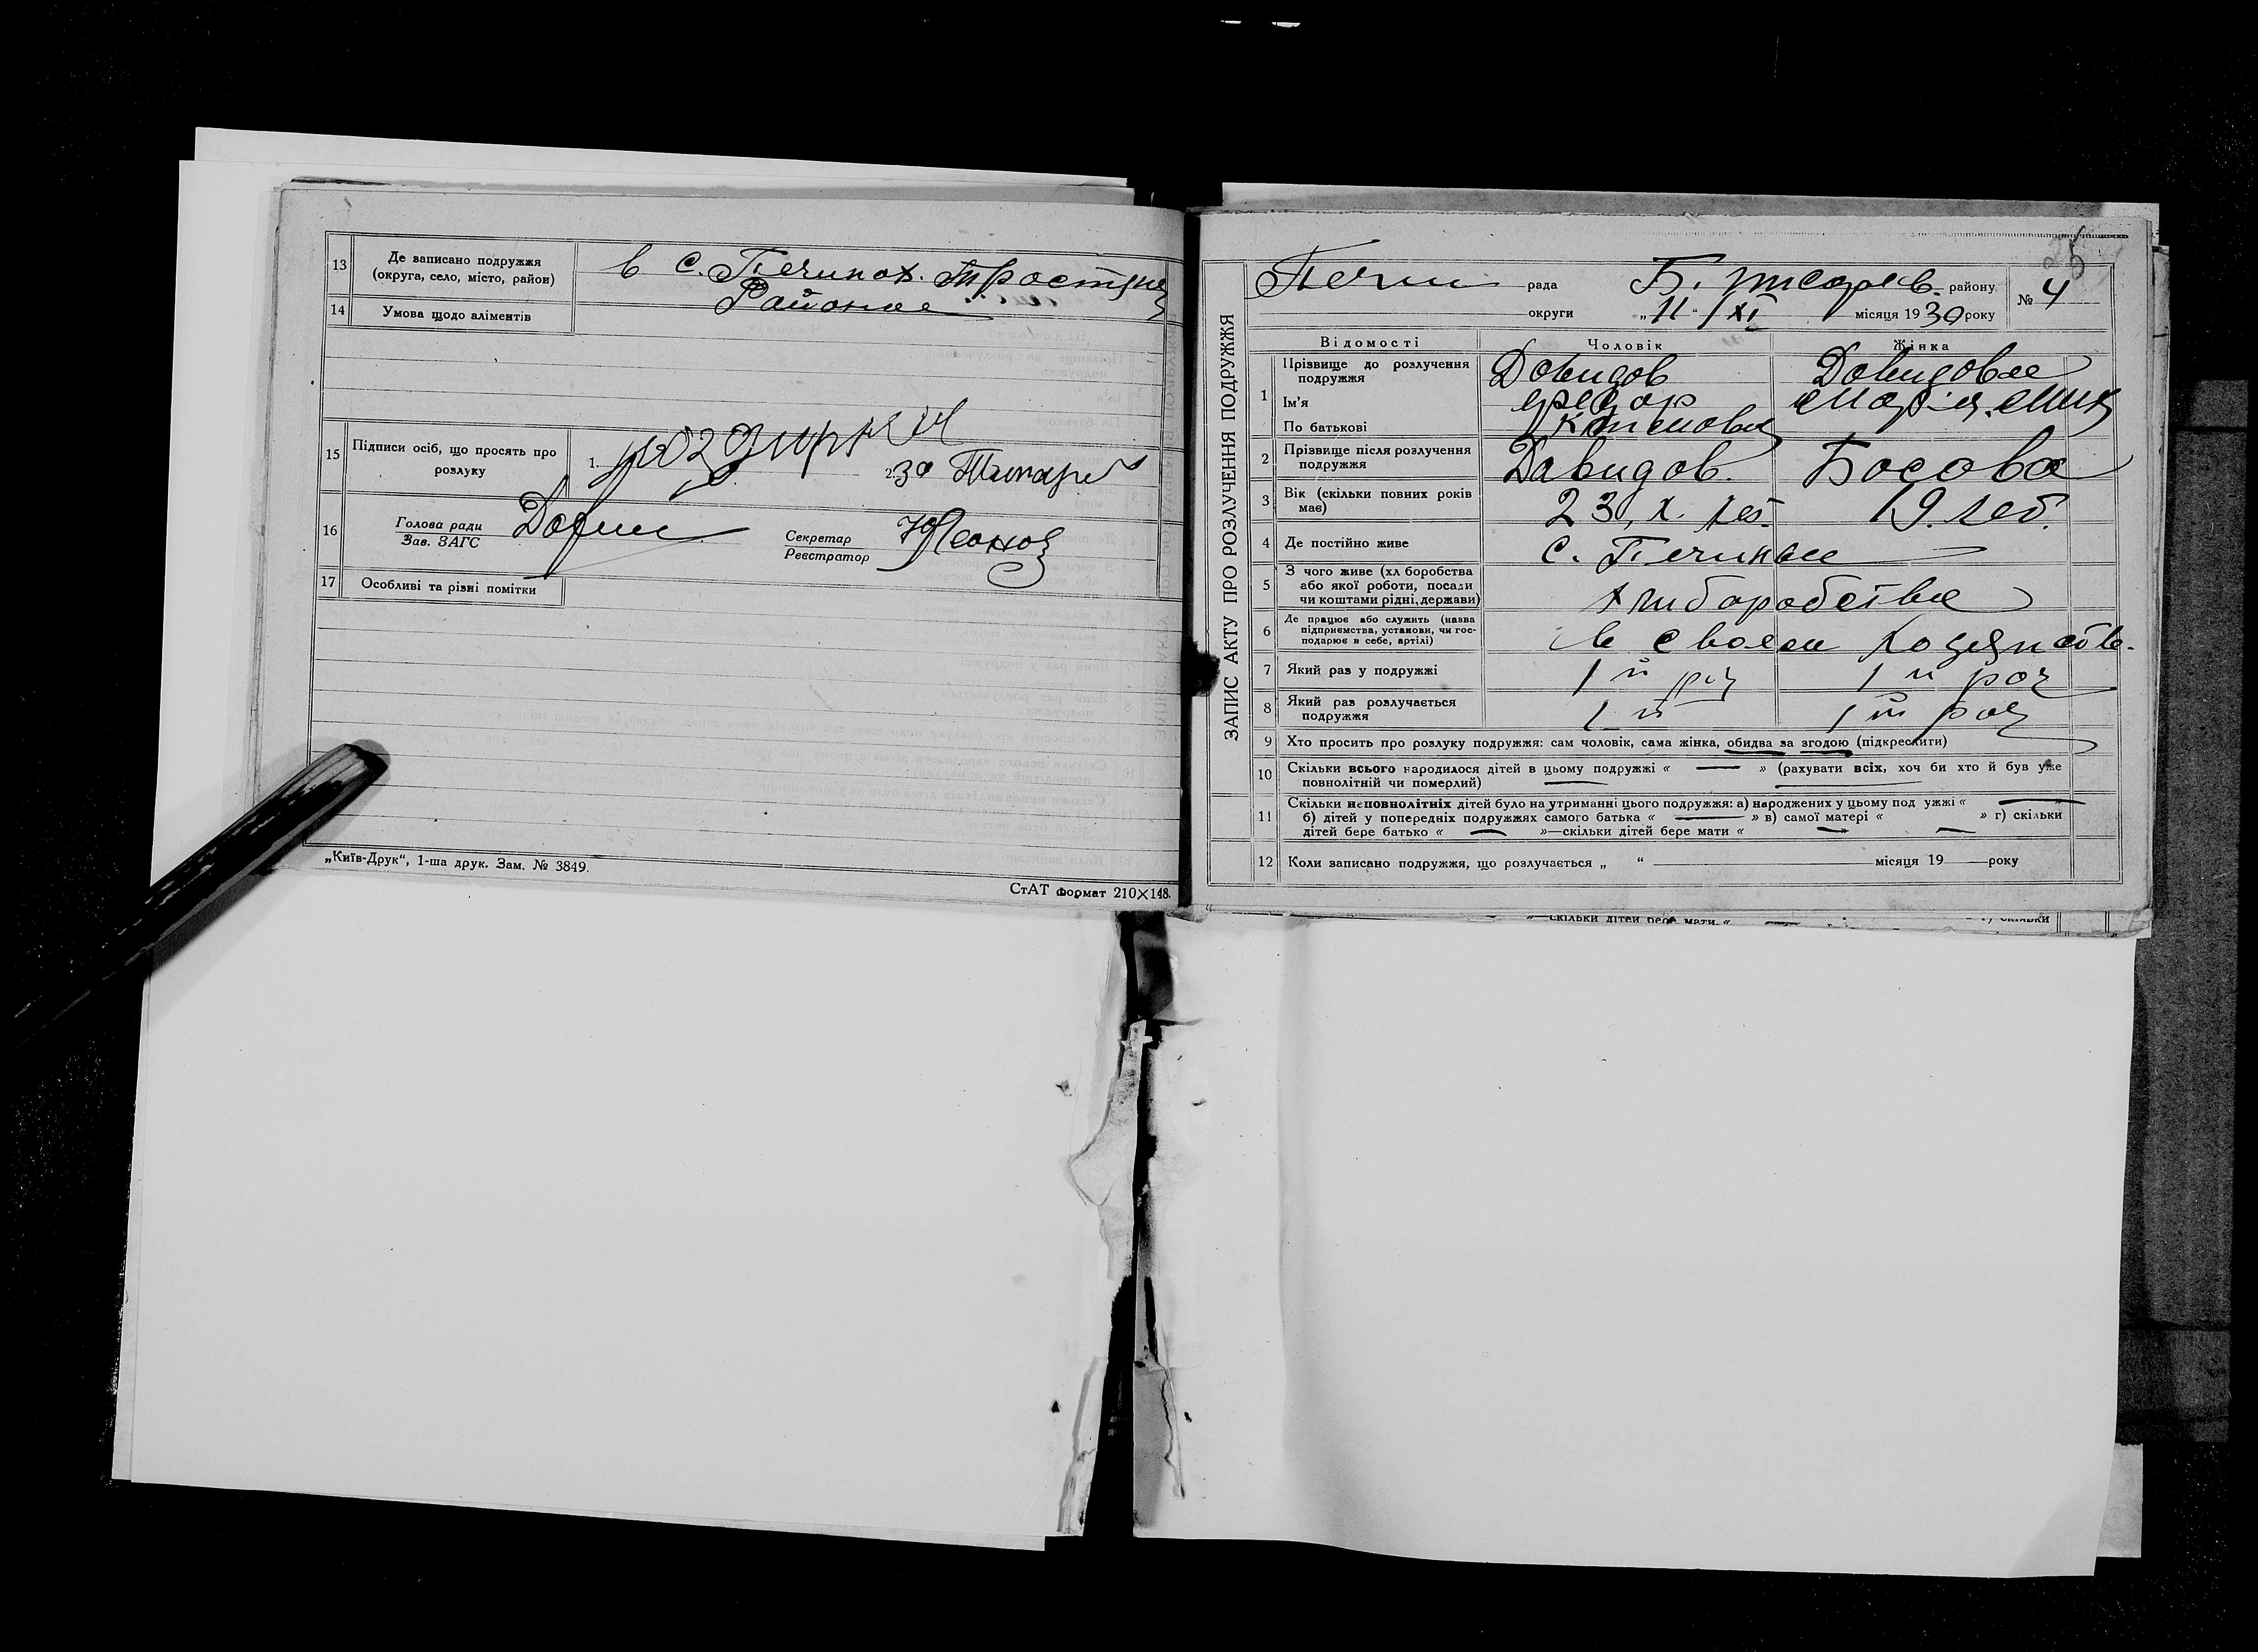 13 Де записано подружжя
(округа, село, місто, район)
в с. Печинах. Тростян
Районе
14 Умова щодо аліментів
15 Підписи осіб, що просять про
розлуку
1.
2.
16 Голова ради
Зав. ЗАГС
Секретар
Реєстратор
17 Особливі та різні помітки
„Київ-Друк“, 1-ша друк. Зам. № 3849.
СтАТ формат 210×148.
ЗАПИС АКТУ ПРО РОЗЛУЧЕННЯ ПОДРУЖЖЯ
25
Печин рада Б. Писарев. району № 4
округи „11“ XI місяця 1930 року
Відомості Чоловік Жінка
1 Прізвище до розлучення
подружжя
Давидов Давидова
Ім'я Федор Марія
По батькові
2 Прізвище після розлучення
подружжя
Давидов. Босова
3 Вік (скільки повних років
має)
23 19. лет.
4 Де постійно живе с. Печины
5 З чого живе (хл боробства
або якої роботи, посади
чи коштами рідні, держави)
хлиборобства
6 Де працює або служить (назва
підприємства, установи, чи гос-
подарює в себе, артілі)
в своем хозяйстве.
7 Який раз у подружжі 1 й раз 1 й раз
8 Який раз розлучається
подружжя
1 й 1 й раз
9 Хто просить про розлуку подружжя: сам чоловік, сама жінка, обидва за згодою (підкреслити)
10 Скільки всього народилося дітей в цьому подружжі « — » (рахувати всіх, хоч би хто й був уже
повнолітній чи померлий)
11 Скільки неповнолітніх дітей було на утриманні цього подружжя: а) народжених у цьому под ужжі « —
б) дітей у попередніх подружжях самого батька « — » в) самої матері « » г) скільки
дітей бере батько « — »—скільки дітей бере мати « —
12 Коли записано подружжя, що розлучається „ “ місяця 19 року
»—скільки дітей бере мати «